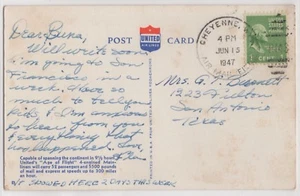 POST CARD
UNITED
AIR LINES
CHEYENNE,
JUN 15
4 PM
1947
Dear Buna,
Will write soon
I'm going to San
Francisco, in about a
week. I have so
much to tell you
kids. I am anxious
to hear from you
Everything
that
happened. Love
Mrs. G. T.
San Antonio
Texas
Capable of spanning the continent in 9½ hours,
United's "Age of Flight" 4-engined Main-
liners will carry 52 passengers and 5500 pounds
of mail and express at speeds up to 300 miles
an hour.
IT SNOWED HERE 2 DAYS THIS WEEK